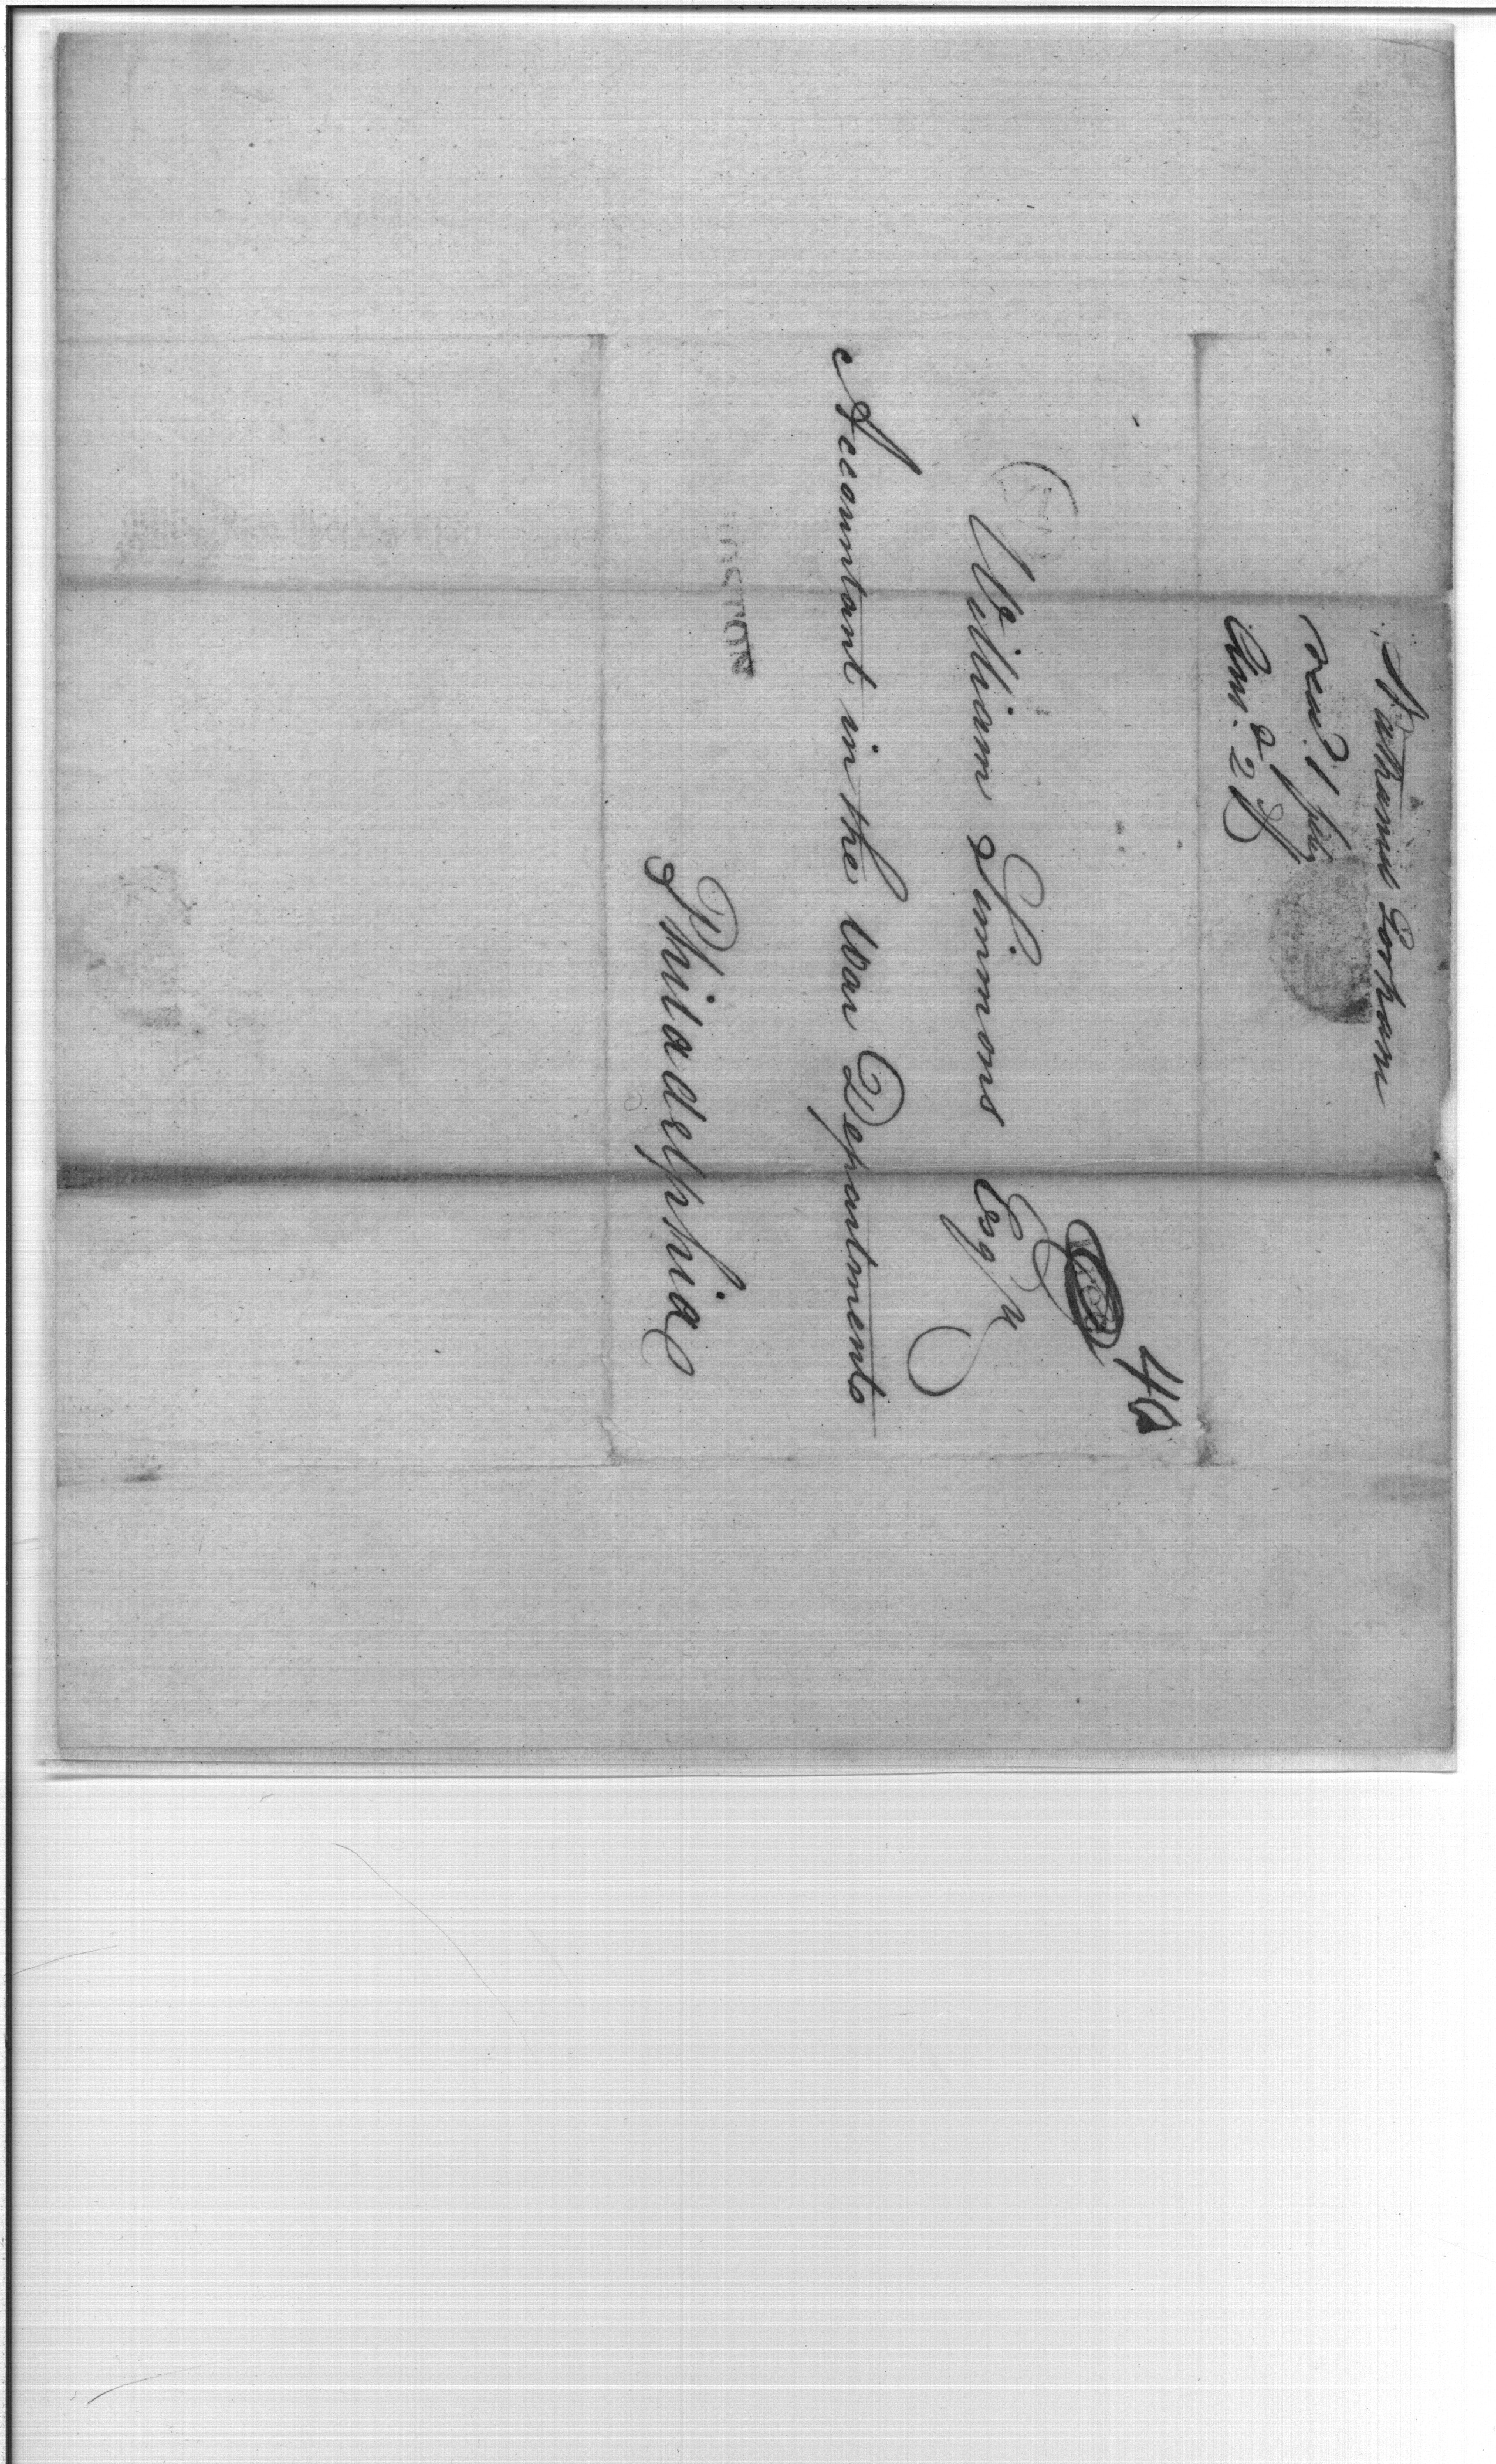 Nathaniel Gorham
recd. 1 July
Ansd. 2d
40
William Simmons Esqr
Accountant in the War Department
Philadelphia